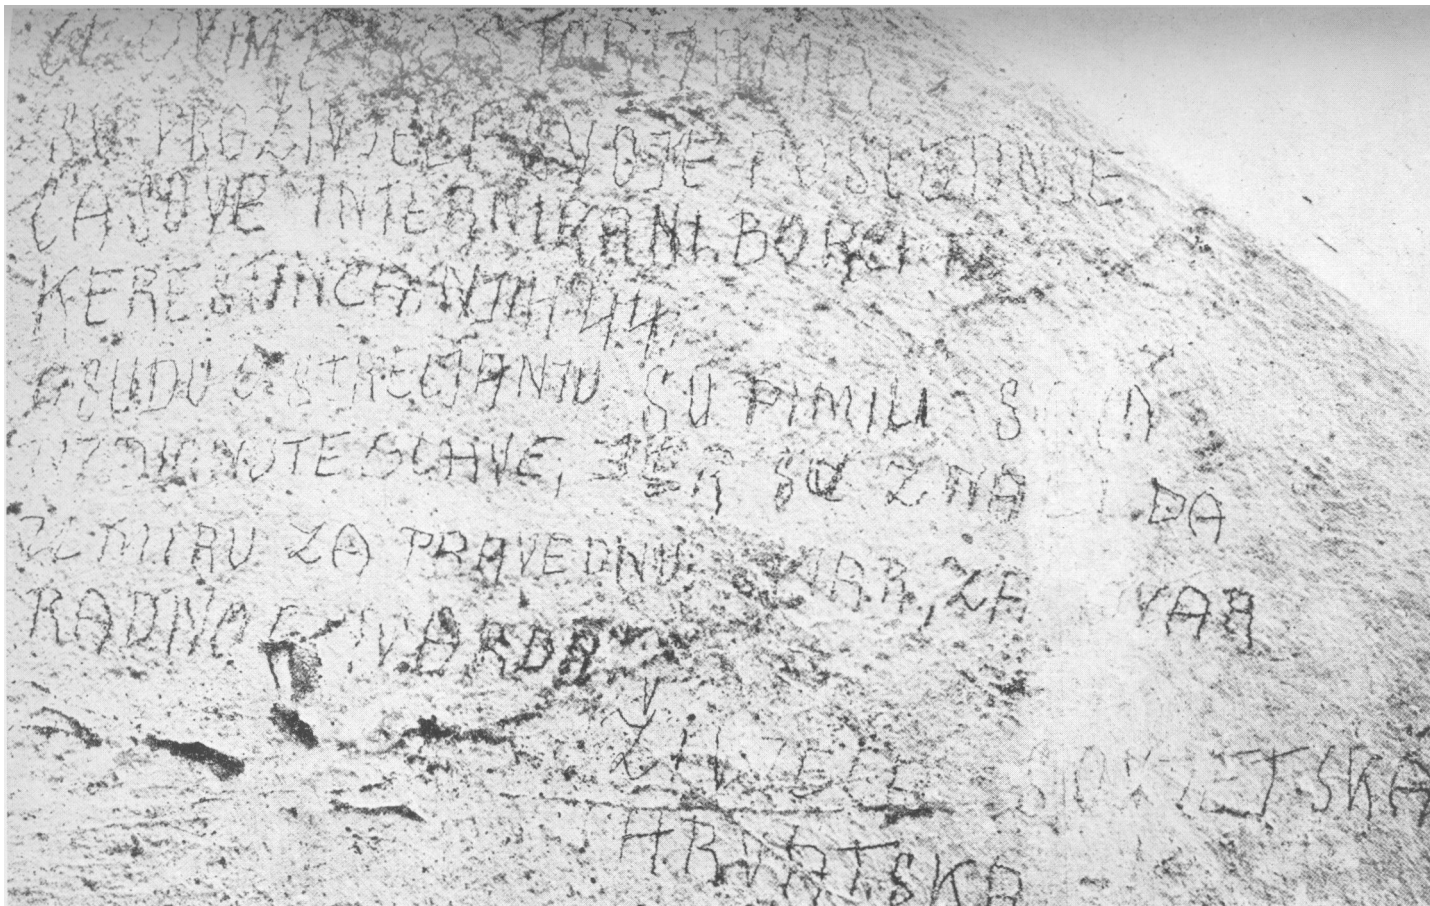 U OVIM PROSTORIJAMA
SU PROŽIVJELI SVOJE POSLJEDNJE
ČASOVE INTERNIRANI BORCI IZ
KERESTINCA NJIH 44.
OSUDU O STRELJANJU SU PIMILI
GLAVE, JER SU ZNALI DA
UMIRU ZA PRAVEDNU STVAR, ZA STVAR
RADNOG NARODA
SOVJETSKA
HRVATSKA